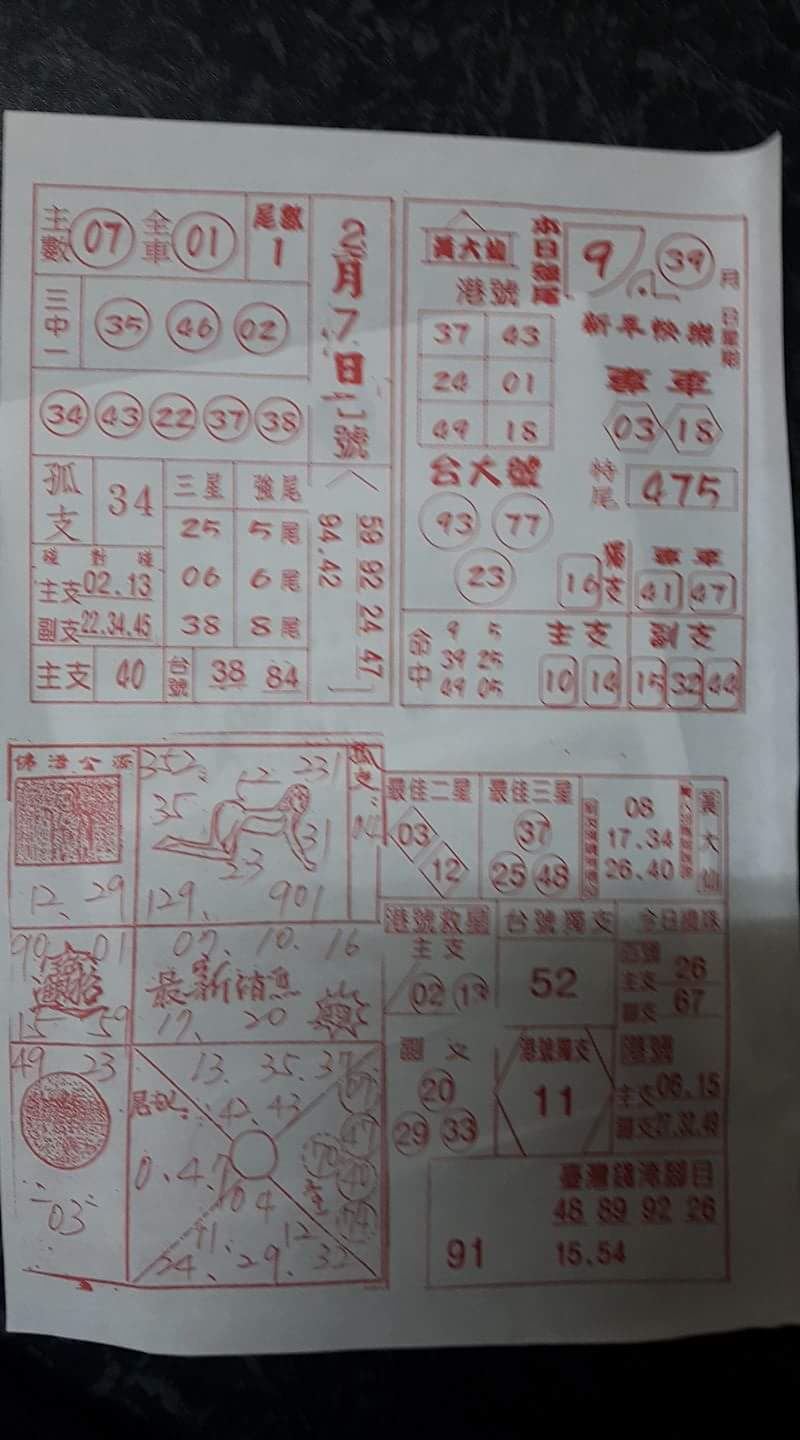 主數 07 全車 01 尾數 1
三中一 35 46 02
34 43 22 37 38
孤支 34
三星 強尾
25 5尾
06 6尾
38 8尾
碰 對 碰
主支 02.13
副支 22.34.45
主支 40 台號 38 84
2月7日 號
59 92 24 47
94.42
黃大仙 港號
本日強尾 9 39
月 日星期
新年快樂
37 43
24 01
49 18
專車
03 18
台大號
93 77
23
特尾 475
獨支 16
專車
41 47
命中
9 5
39 25
49 05
主支 副支
10 14 15 32 44
352 12 231
35 31
23
129. 901
孤支: 04
12、29
99 01
15 59
07. 10. 16
最新消息
17、 20
49 23
03
13. 35. 37
尾數:
42. 43
0.4.7
04
41. 12
24、29. 32
67
47
70 40
74
最佳二星 最佳三星
03 12
37
25 48
08
17.34
26.40
黃大仙
港號救星 台號獨支 今日機珠
主支
02 13
52
主支 26
副支 67
副支
20
29 33
港號獨支
11
港號
主支 06.15
副支 27.32.49
臺灣錢淹腳目
48 89 92 26
91 15.54